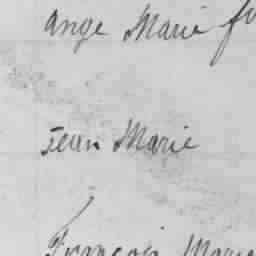 ange Marie
Jean Marie
François Marie